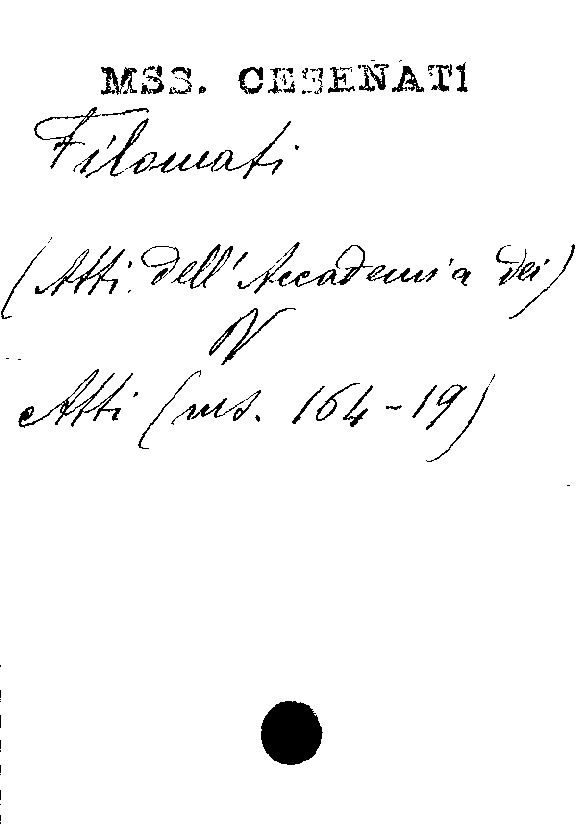 MSS. CESENATI
Filomati
(Atti dell'Accademia dei)
V
Atti (ms. 164-19)